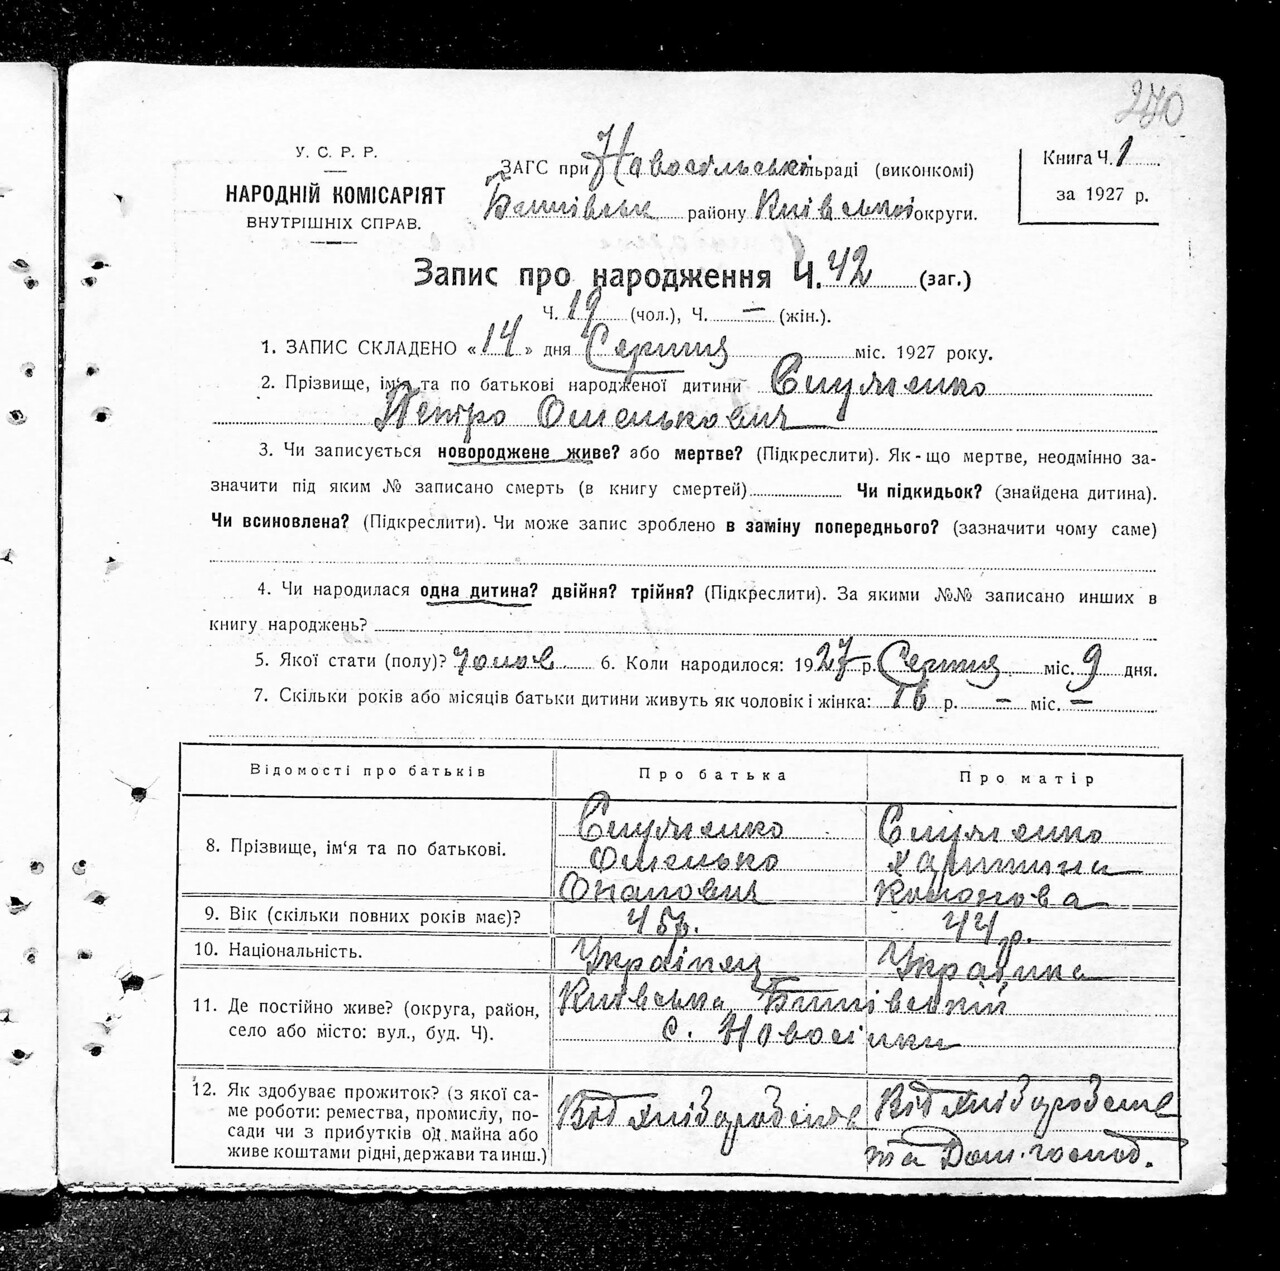 270
У. С. Р. Р.
НАРОДНІЙ КОМІСАРІЯТ
ВНУТРІШНІХ СПРАВ.
ЗАГС при Новосільські льраді (виконкомі)
району Київської округи.
Книга Ч. 1
за 1927 р.
Запис про народження Ч. 42 (заг.)
Ч. 19 (чол.), Ч. — (жін.).
1. ЗАПИС СКЛАДЕНО «14» дня Серпня міс. 1927 року.
2. Прізвище, ім'я та по батькові народженої дитини
Петро Омелькович
3. Чи записується новороджене живе? або мертве? (Підкреслити). Як-що мертве, неодмінно за-
значити під яким № записано смерть (в книгу смертей) Чи підкидьок? (знайдена дитина).
Чи всиновлена? (Підкреслити). Чи може запис зроблено в заміну попереднього? (зазначити чому саме)
4. Чи народилася одна дитина? двійня? трійня? (Підкреслити). За якими №№ записано инших в
книгу народжень?
5. Якої стати (полу)? чолов 6. Коли народилося: 1927 р. Серпня міс. 9 дня.
7. Скільки років або місяців батьки дитини живуть як чоловік і жінка: 16 р. — міс. —
Відомості про батьків Про батька Про матір
8. Прізвище, ім'я та по батькові.
Омелько
Харитина
9. Вік (скільки повних років має)? 45р. 44р.
10. Національність. Українец Українка
11. Де постійно живе? (округа, район,
село або місто: вул., буд. Ч).
Київська
с. Новосілки
12. Як здобуває прожиток? (з якої са-
ме роботи: ремества, промислу, по-
сади чи з прибутків од майна або
живе коштами рідні, держави та инш.)
Від хліборобства
Від хліборобства
та Дом. господ.